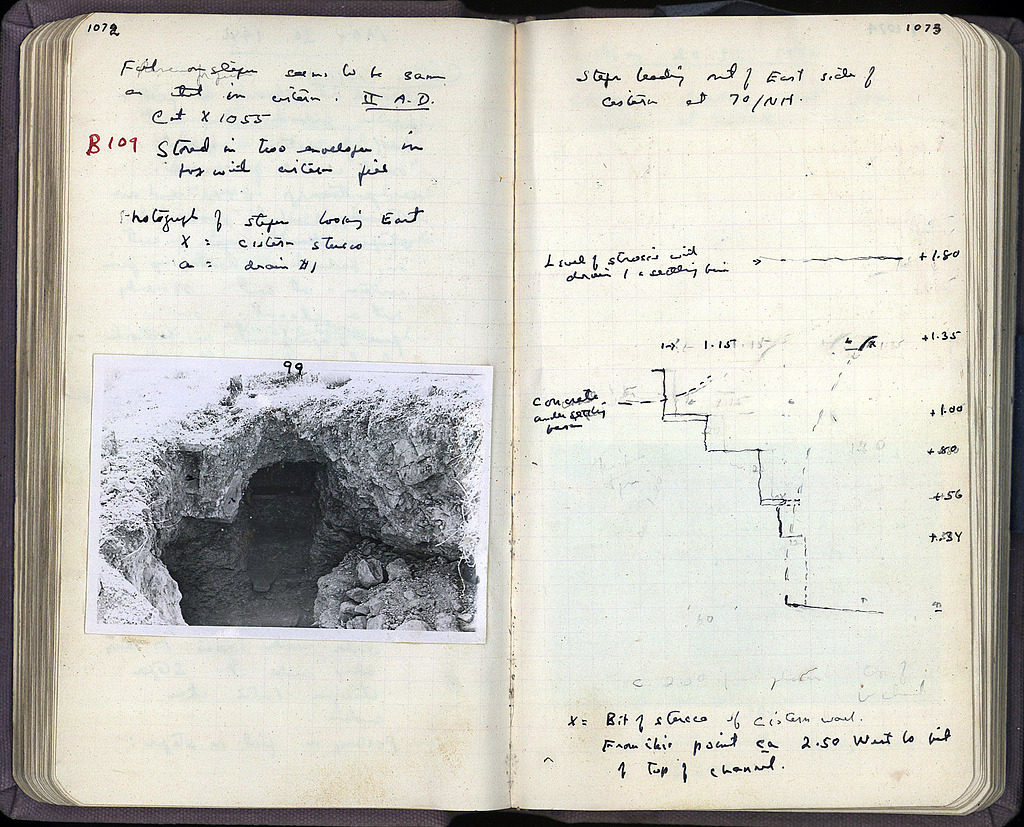 1072
Fill on steps seems to be same
as that in cistern. II A.D.
Cat X 1055
B109 Stored in two envelopes in
tray with cistern fill
Photograph of steps looking East
X = cistern stucco
a = drain #1
99
1073
Steps leading out of East side of
cistern at 70/NH.
Level of strosis with
drain 1 & settling basin
+1.80
1.15
+1.35
concrete
under settling
basin
+1.00
+.80
+.56
+.34
X = Bit of stucco of cistern wall.
From this point ca 2.50 West to
of top of channel.